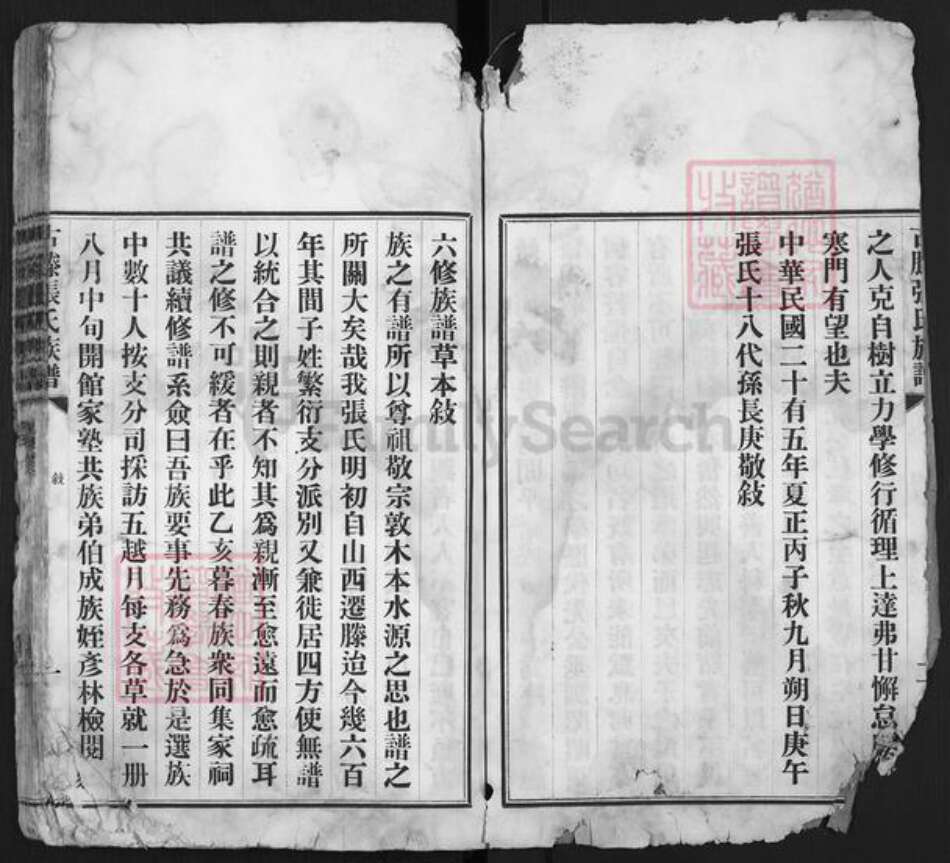 之人克自樹立力學修行循理上達弗甘懈怠
寒門有望也夫
中華民國二十有五年夏正丙子秋九月朔日庚午
張氏十八代孫長庚敬敍
六修族譜草本敍
族之有譜所以尊祖敬宗敦木本水源之思也譜之
所關大矣哉我張氏明初自山西遷滕迨今幾六百
年其間子姓繁衍支分派別又兼徙居四方便無譜
以統合之則親者不知其爲親漸至愈遠而愈疏耳
譜之修不可緩者在乎此乙亥暮春族衆同集家祠
共議續修譜系僉曰吾族要事先務爲急於是選族
中數十人按支分司採訪五越月每支各草就一册
八月中旬開館家塾共族弟伯成族姪彥林檢閱
古滕張氏族譜
敍
一
FamilySearch